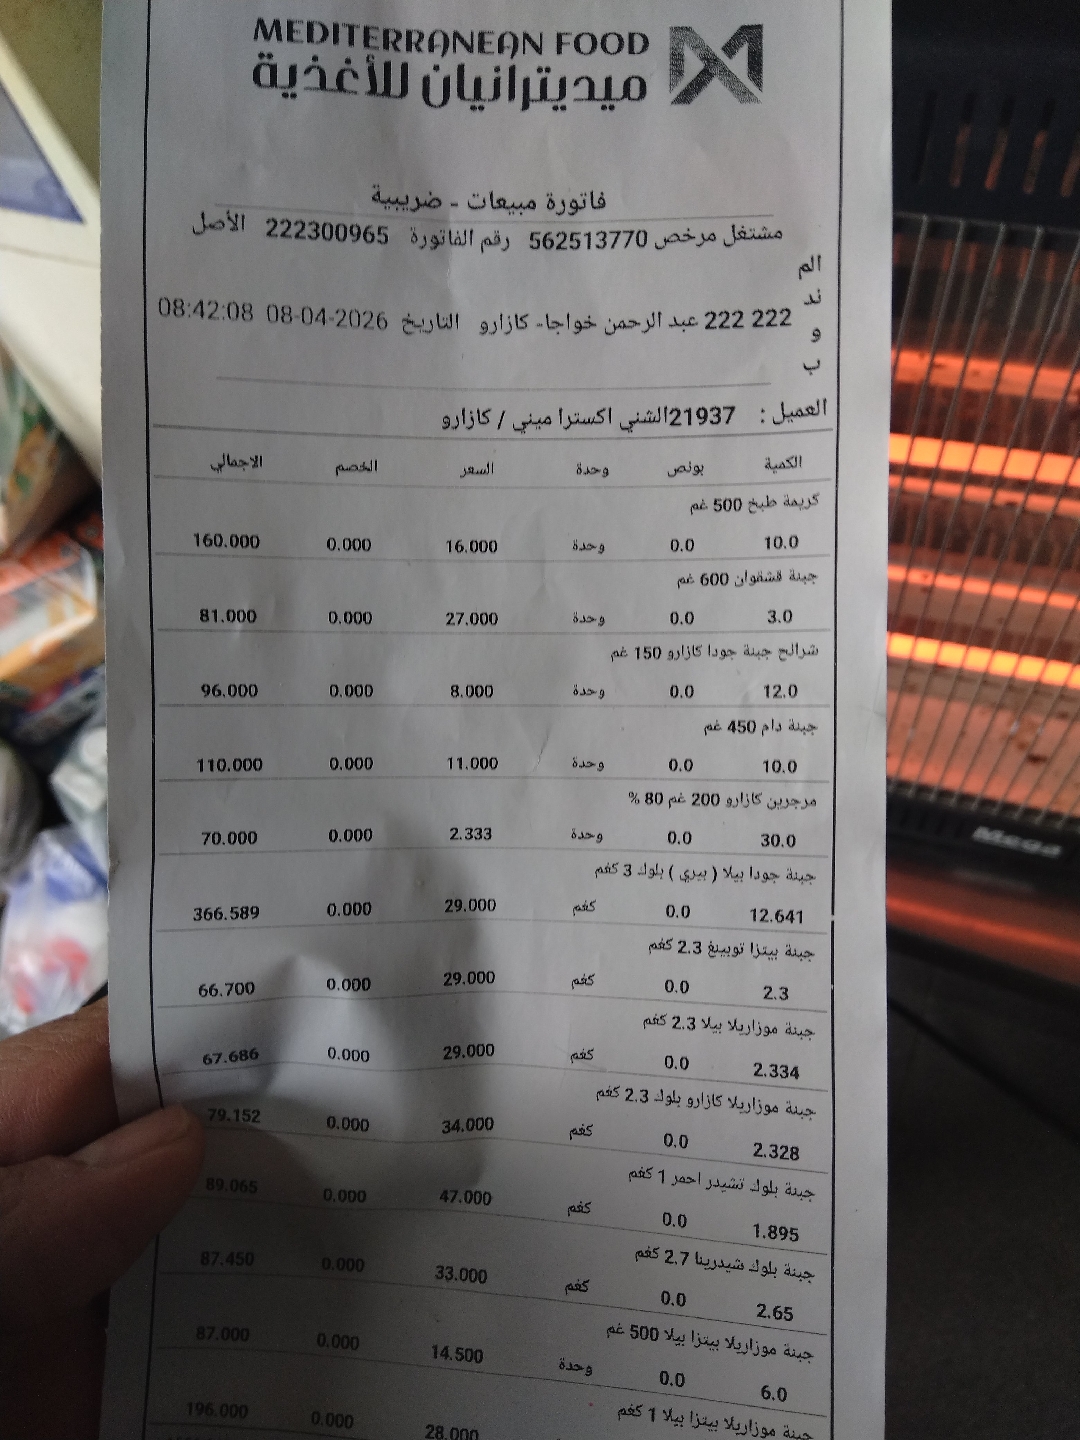 MEDITERRANEAN FOOD
ميديترانيان للأغذية
فاتورة مبيعات - ضريبية
مشتغل مرخص 562513770 رقم الفاتورة 222300965 الأصل
المندوب 222 222 عبد الرحمن خواجا- كازارو التاريخ 08-04-2026 08:42:08
العميل : 21937الشني اكسترا ميني / كازارو
الكمية بونص وحدة السعر الخصم الاجمالي
كريمة طبخ 500 غم
10.0 0.0 وحدة 16.000 0.000 160.000
جبنة قشقوان 600 غم
3.0 0.0 وحدة 27.000 0.000 81.000
شرائح جبنة جودا كازارو 150 غم
12.0 0.0 وحدة 8.000 0.000 96.000
جبنة دام 450 غم
10.0 0.0 وحدة 11.000 0.000 110.000
مرجرين كازارو 200 غم 80 %
30.0 0.0 وحدة 2.333 0.000 70.000
جبنة جودا بيلا ( بيري ) بلوك 3 كغم
12.641 0.0 كغم 29.000 0.000 366.589
جبنة بيتزا توبينغ 2.3 كغم
2.3 0.0 كغم 29.000 0.000 66.700
جبنة موزاريلا بيلا 2.3 كغم
2.334 0.0 كغم 29.000 0.000 67.686
جبنة موزاريلا كازارو بلوك 2.3 كغم
2.328 0.0 كغم 34.000 0.000 79.152
جبنة بلوك تشيدر احمر 1 كغم
1.895 0.0 كغم 47.000 0.000 89.065
جبنة بلوك شيدرينا 2.7 كغم
2.65 0.0 كغم 33.000 0.000 87.450
جبنة موزاريلا بيتزا بيلا 500 غم
6.0 0.0 وحدة 14.500 0.000 87.000
جبنة موزاريلا بيتزا بيلا 1 كغم
28.000 0.000 196.000
Mega